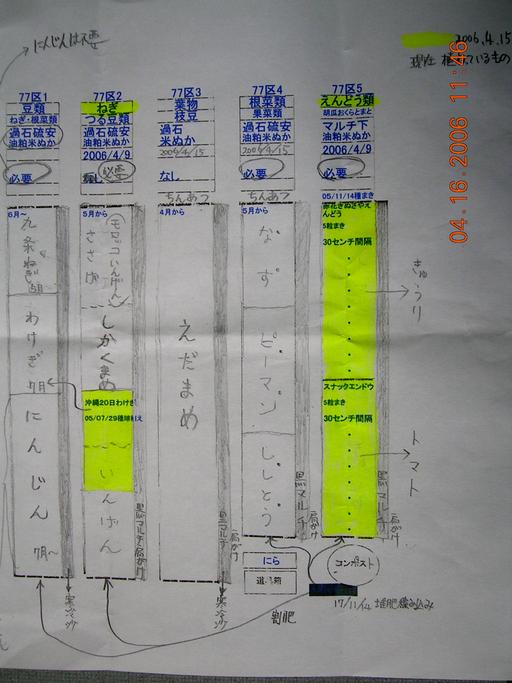 にんじんは不要
2006.4.15
現在 植えているもの
04.16.2006 11:46
77区1
豆類
ねぎ・根菜類
過石硫安
油粕米ぬか
必要
6月~
九条ねぎ
わけぎ
7月
にんじん
7月~
寒冷沙
77区2
ねぎ
つる豆類
過石硫安
油粕米ぬか
2006/4/9
必要
5月から
モロッコいんげん
ささげ
しかくまめ
沖縄20日わけぎ
いんげん
黒マルチ肩がけ
77区3
葉物
枝豆
過石
米ぬか
2006/4/15
なし
ちんあつ
4月から
えだまめ
黒マルチ
肩がけ
寒冷沙
77区4
根菜類
果菜類
過石硫安
油粕米ぬか
2006/4/15
必要
ちんあつ
5月から
なす
ピーマン
ししとう
黒マルチ
肩がけ
にら
道具箱
割肥
77区5
えんどう類
胡瓜おくらとまと
マルチ下
過石硫安
油粕米ぬか
2006/4/9
必要
05/11/14種まき
赤花きぬさやえんどう
5粒まき
30センチ間隔
きゅうり
スナックエンドウ
5粒まき
30センチ間隔
トマト
黒マルチ
肩がけ
コンポスト
17/11/14 堆肥積み込み